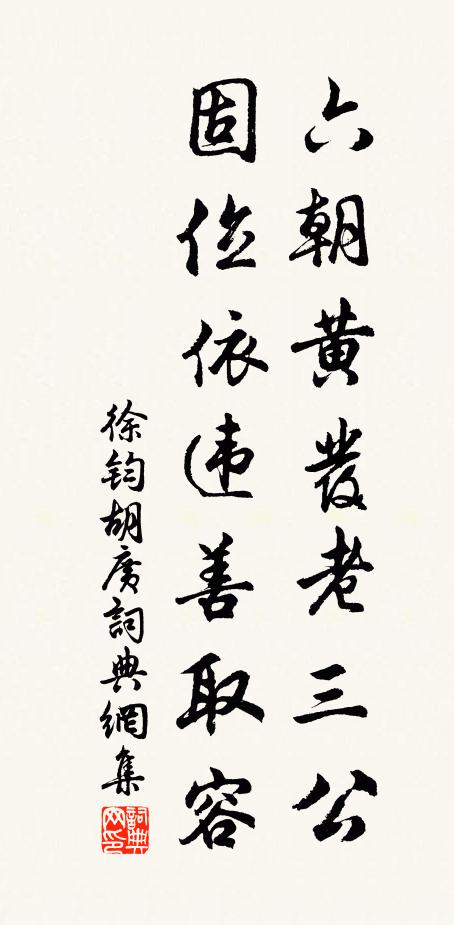 六朝黄發老三公
固位依违善取容
徐鈞胡廣詞典網集
詞典网印